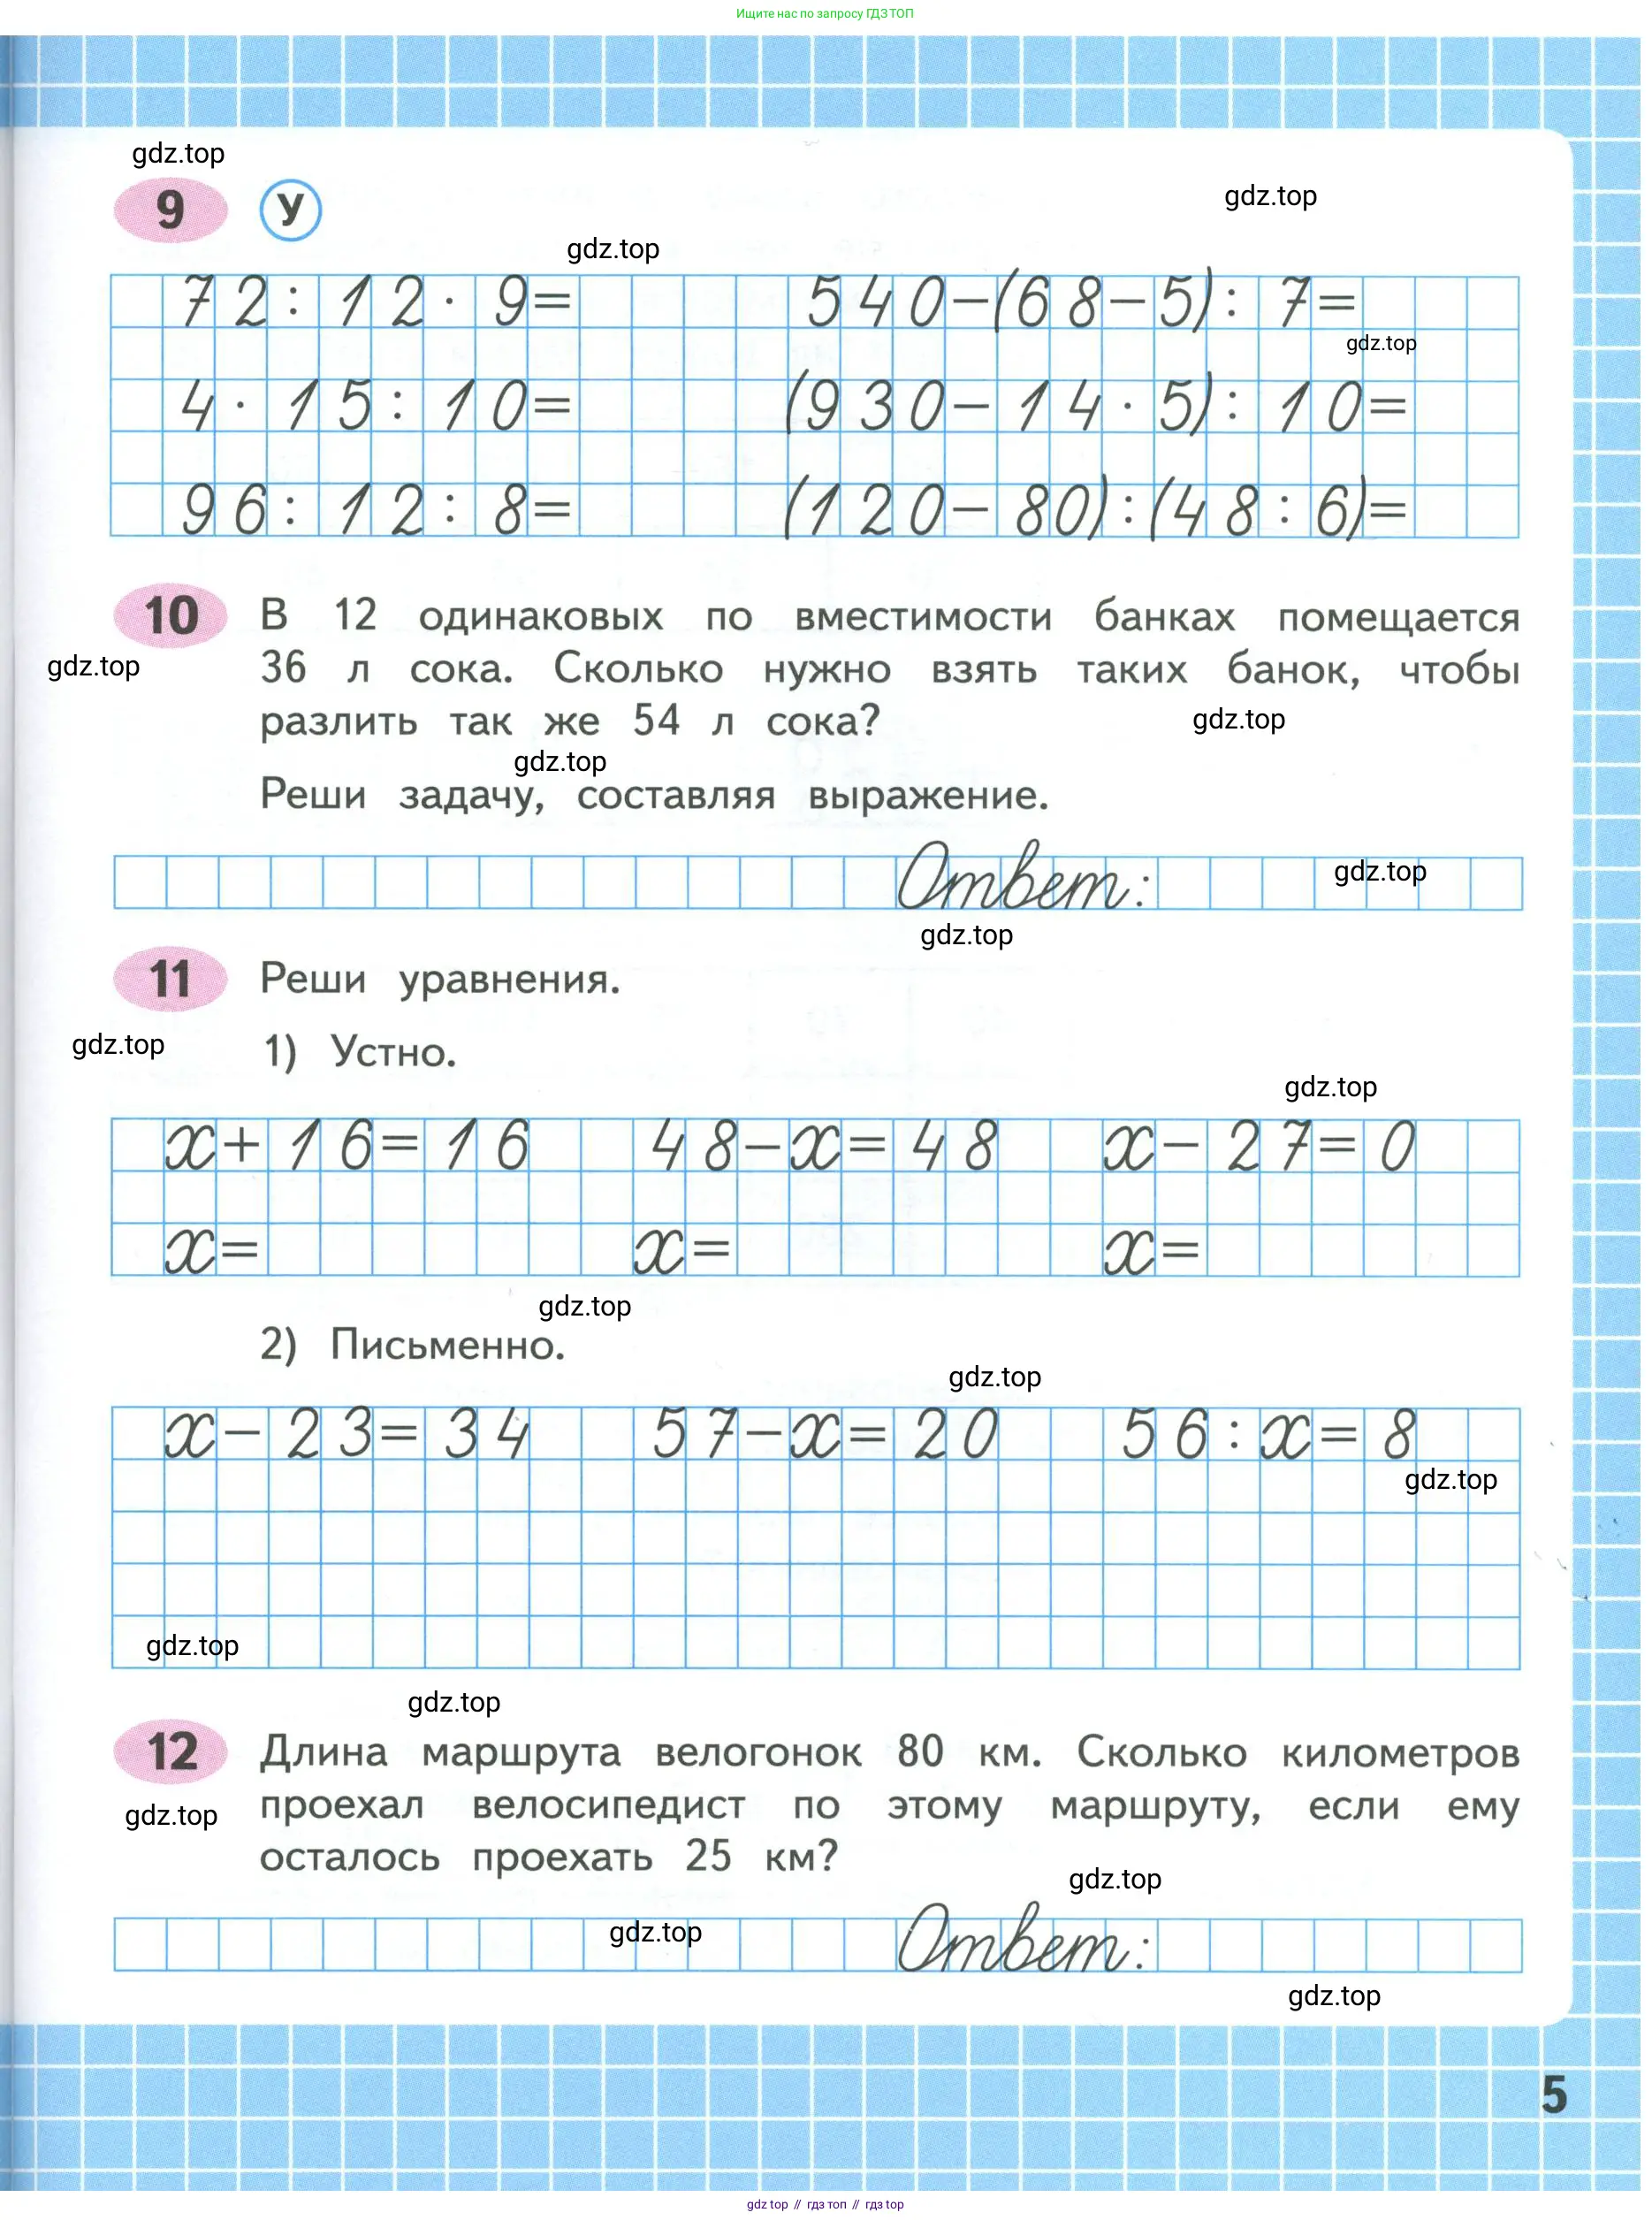 Ищите нас по запросу ГДЗ ТОП
gdz.top
9 У
gdz.top
gdz.top
72:12·9= 540-(68-5):7=
gdz.top
4·15:10= (930-14·5):10=
96:12:8= (120-80):(48:6)=
10 В 12 одинаковых по вместимости банках помещается
gdz.top
36 л сока. Сколько нужно взять таких банок, чтобы
разлить так же 54 л сока?
gdz.top
gdz.top
Реши задачу, составляя выражение.
Ответ:
gdz.top
gdz.top
11 Реши уравнения.
gdz.top
1) Устно.
gdz.top
x+16=16 48-x=48 x-27=0
x= x= x=
gdz.top
2) Письменно.
gdz.top
x-23=34 57-x=20 56:x=8
gdz.top
gdz.top
gdz.top
12 Длина маршрута велогонок 80 км. Сколько километров
gdz.top
проехал велосипедист по этому маршруту, если ему
осталось проехать 25 км?
gdz.top
gdz.top
Ответ:
gdz.top
5
gdz top // гдз топ // gdz top